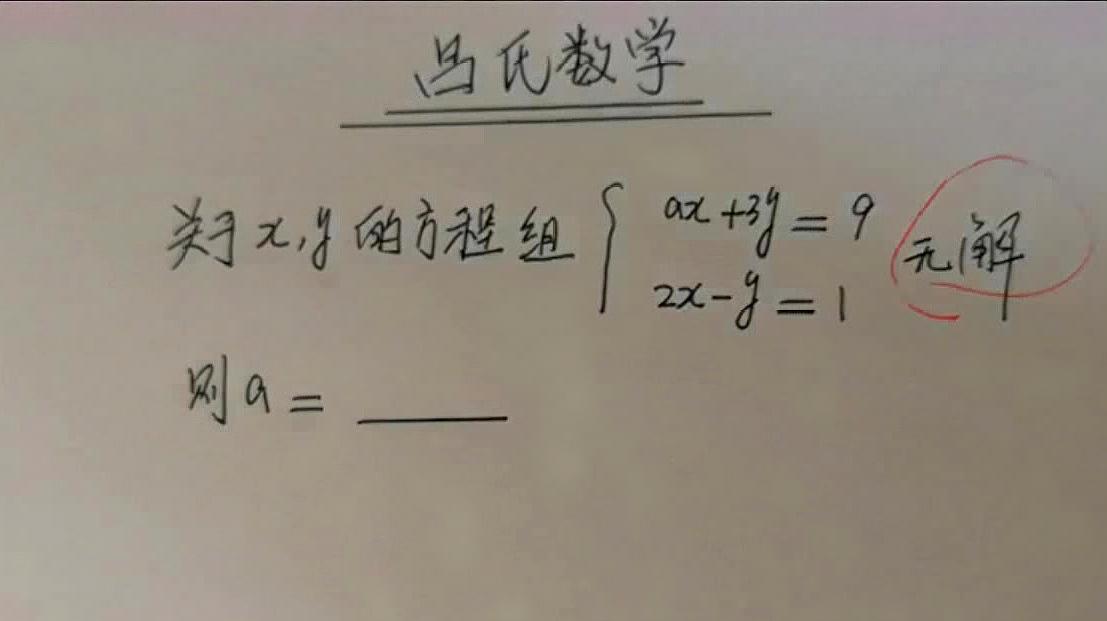 吕氏数学
关于x,y的方程组{ax+3y=9 无解
2x-y=1
则a=____